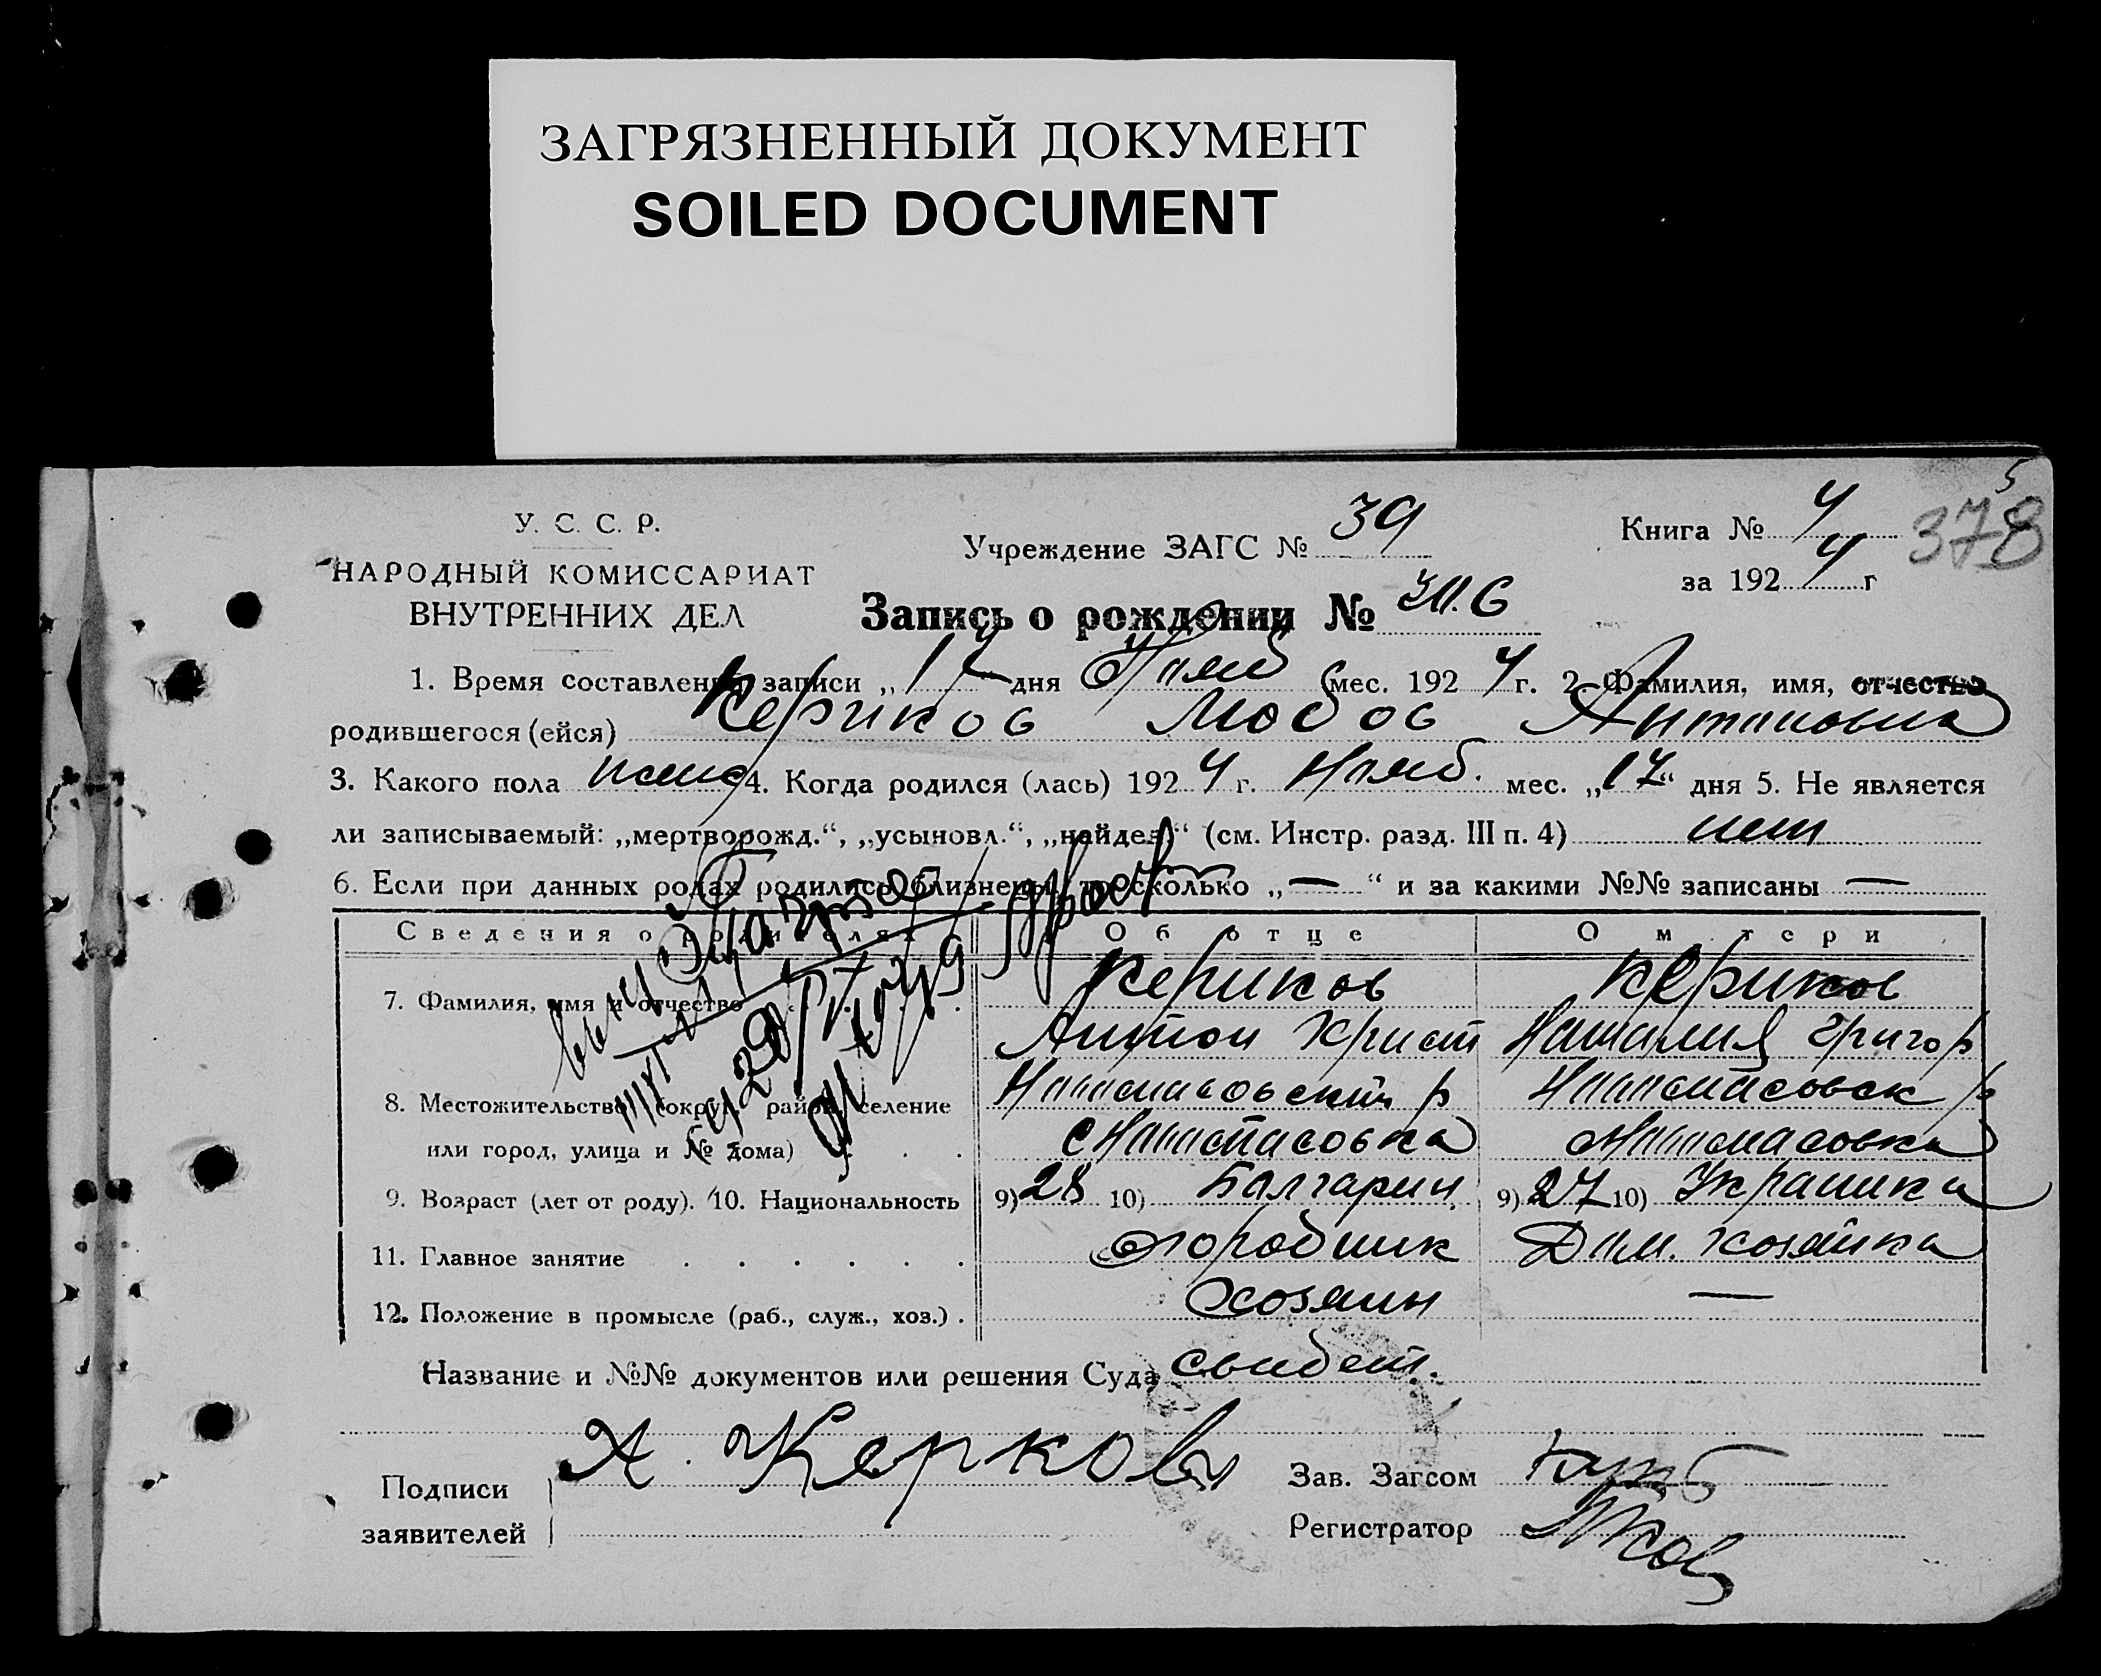 ЗАГРЯЗНЕННЫЙ ДОКУМЕНТ
SOILED DOCUMENT
378
У. С. С. Р.
НАРОДНЫЙ КОМИССАРИАТ
ВНУТРЕННИХ ДЕЛ
Учреждение ЗАГС № 39
Книга № 4
за 192 4 г
Запись о рождении №
1. Время составления записи „ 17 дня Нояб мес. 192 4 г. 2 Фамилия, имя, отчество
родившегося (ейся) Кериков Любов Антоновна
3. Какого пола женс 4. Когда родился (лась) 192 4 г. Нояб. мес. „17“ дня 5. Не является
ли записываемый: „мертворожд.“, „усыновл.“, „найден“ (см. Инстр. разд. III п. 4) нет
6. Если при данных родах родились близнецы, то сколько „—“ и за какими №№ записаны —
Сведения о родителях Об отце О матери
7. Фамилия, имя и отчество Кериков Кериков
Антон Христ Наталия Григор
8. Местожительство (округ, район, селение
или город, улица и № дома)
9. Возраст (лет от роду). 10. Национальность 9) 28 10) Болгарин 9) 27 10) Украинка
11. Главное занятие Огородник Дом. хозяйка
12. Положение в промысле (раб., служ., хоз.) хозяин —
Название и №№ документов или решения Суда свидет.
Подписи заявителей Х. Керков
Зав. Загсом
Регистратор